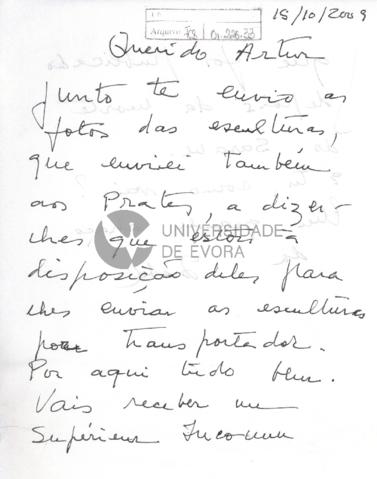 15/10/2009
Arquivo
Querido Artur
Junto te envio as
fotos das esculturas,
que enviei também
aos Prates, a dizer-
lhes que estou à
disposição deles para
lhes enviar as esculturas
por transportador.
Por aqui tudo bem.
Vais receber um
Supérieur Inconnu
UNIVERSIDADE
DE EVORA